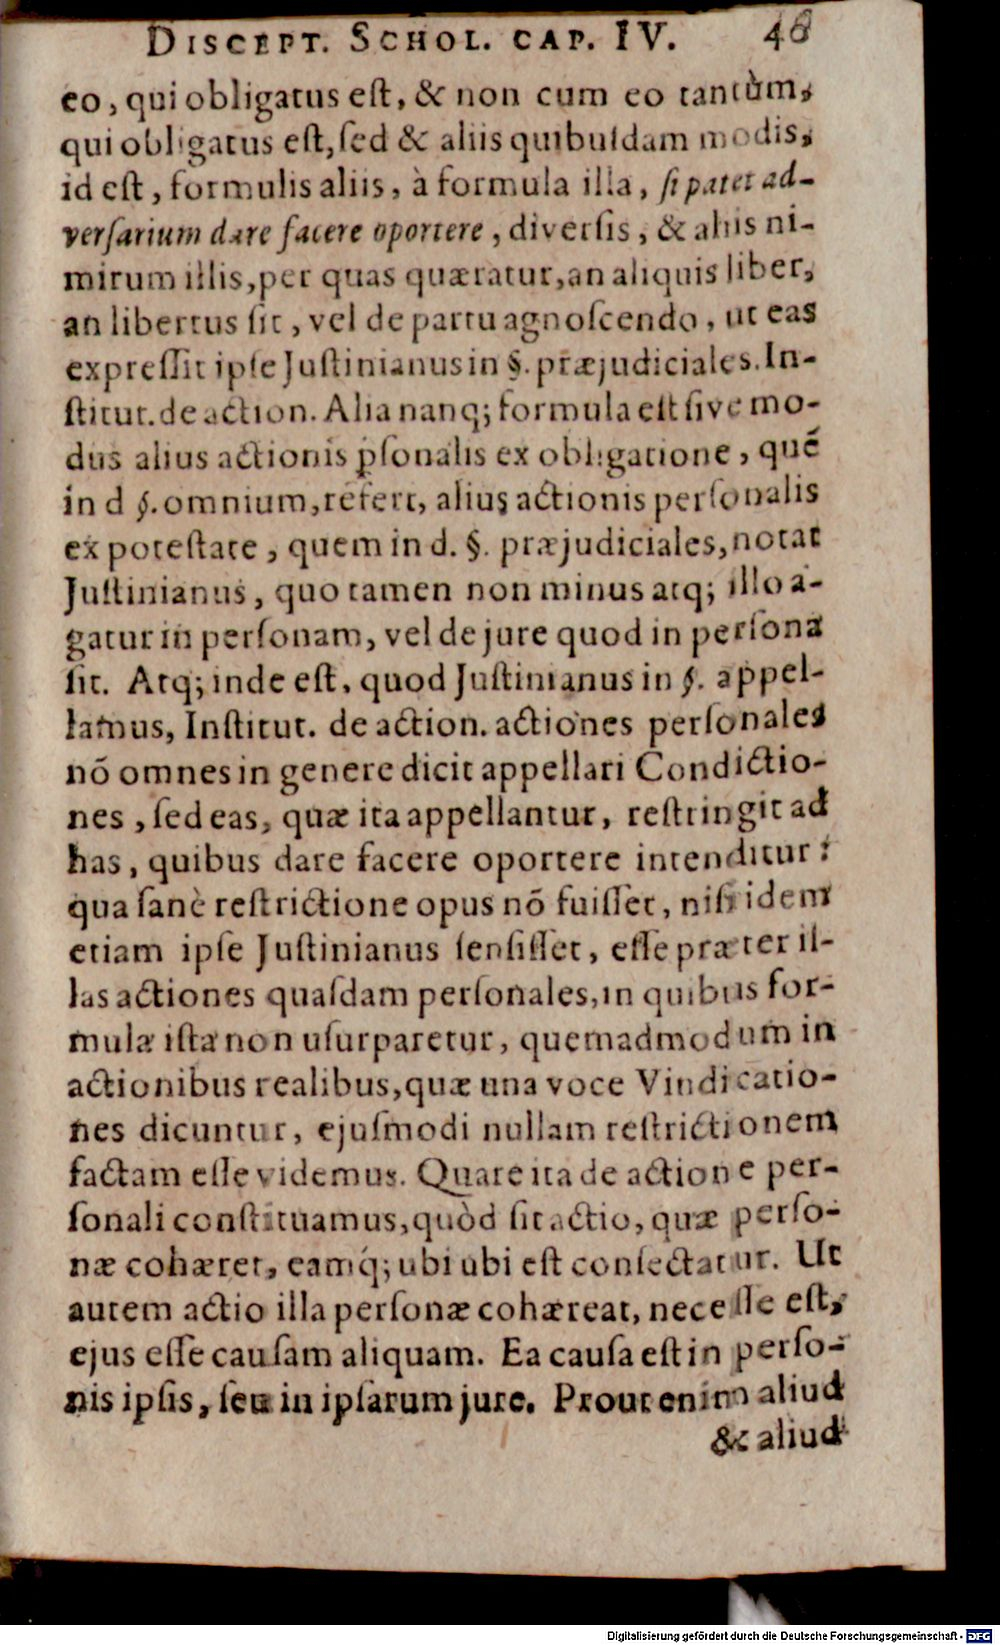 DISCEPT. SCHOL. CAP. IV. 46
eo, qui obligatus eſt, & non cum eo tantùm,
qui obligatus eſt, ſed & aliis quibuſdam modis,
id eſt, formulis aliis, à formula illa, ſi patet ad-
verſarium dare facere oportere, diverſis, & aliis ni-
mirum illis, per quas quæratur, an aliquis liber,
an libertus ſit, vel de partu agnoſcendo, ut eas
expreſſit ipſe Juſtinianus in §. præjudiciales. In-
ſtitut. de action. Alia nanq; formula eſt ſive mo-
dus alius actionis ꝑſonalis ex obligatione, quē
in d §. omnium, refert, alius actionis perſonalis
ex poteſtate, quem in d. §. præjudiciales, notat
Juſtinianus, quo tamen non minus atq; illo a-
gatur in perſonam, vel de jure quod in perſona
ſit. Atq; inde eſt, quod Juſtinianus in §. appel-
lamus, Inſtitut. de action. actiones perſonales
nō omnes in genere dicit appellari Condictio-
nes, ſed eas, quæ ita appellantur, reſtringit ad
has, quibus dare facere oportere intenditur:
qua ſanè reſtrictione opus nō fuiſſet, niſi idem
etiam ipſe Juſtinianus ſenſiſſet, eſſe præter il-
las actiones quaſdam perſonales, in quibus for-
mula iſta non uſurparetur, quemadmodum in
actionibus realibus, quæ una voce Vindicatio-
nes dicuntur, ejuſmodi nullam reſtrictionem
factam eſſe videmus. Quare ita de actione per-
ſonali conſtituamus, quòd ſit actio, quæ perſo-
næ cohæret, eamq́; ubi ubi eſt conſectatur. Ut
autem actio illa perſonæ cohæreat, neceſſe eſt,
ejus eſſe cauſam aliquam. Ea cauſa eſt in perſo-
nis ipſis, ſeu in ipſarum jure. Prout enim aliud
& aliud
Digitalisierung gefördert durch die Deutsche Forschungsgemeinschaft - DFG